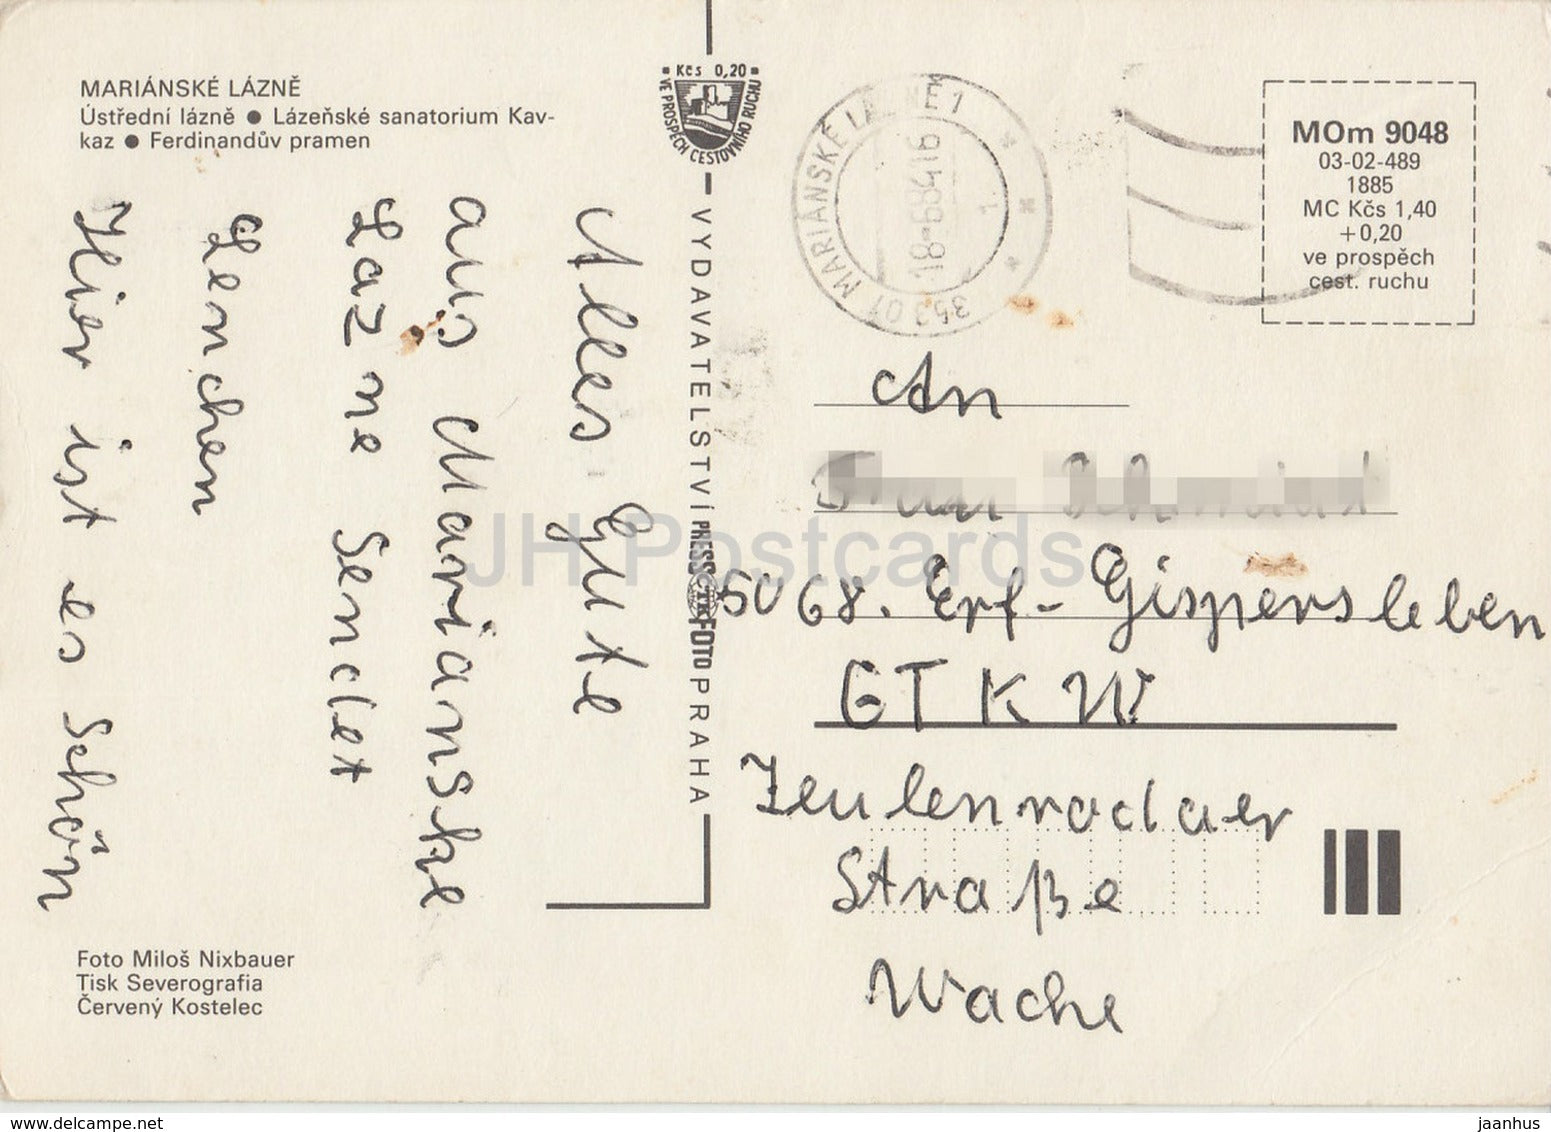 MARIÁNSKÉ LÁZNĚ
Ústřední lázně ● Lázeňské sanatorium Kav-
kaz ● Ferdinandův pramen
Alles Gute
aus Marianske
Lazne Sendet
Lenchen
Hier ist es Schön
Foto Miloš Nixbauer
Tisk Severografia
Červený Kostelec
Kčs 0,20
VE PROSPĚCH CESTOVNÍHO RUCHU
VYDAVATELSTVÍ PRESSFOTO PRAHA
ČTK
353 01 MARIÁNSKÉ LÁZNĚ 1
MOm 9048
03-02-489
1885
MC Kčs 1,40
+0,20
ve prospěch
cest. ruchu
An
Frau
5068. Erf-Gispersleben
GTKW
Zeulenrodaer
Straße
Wache
JH Postcards
www.delcampe.net
jaanhus